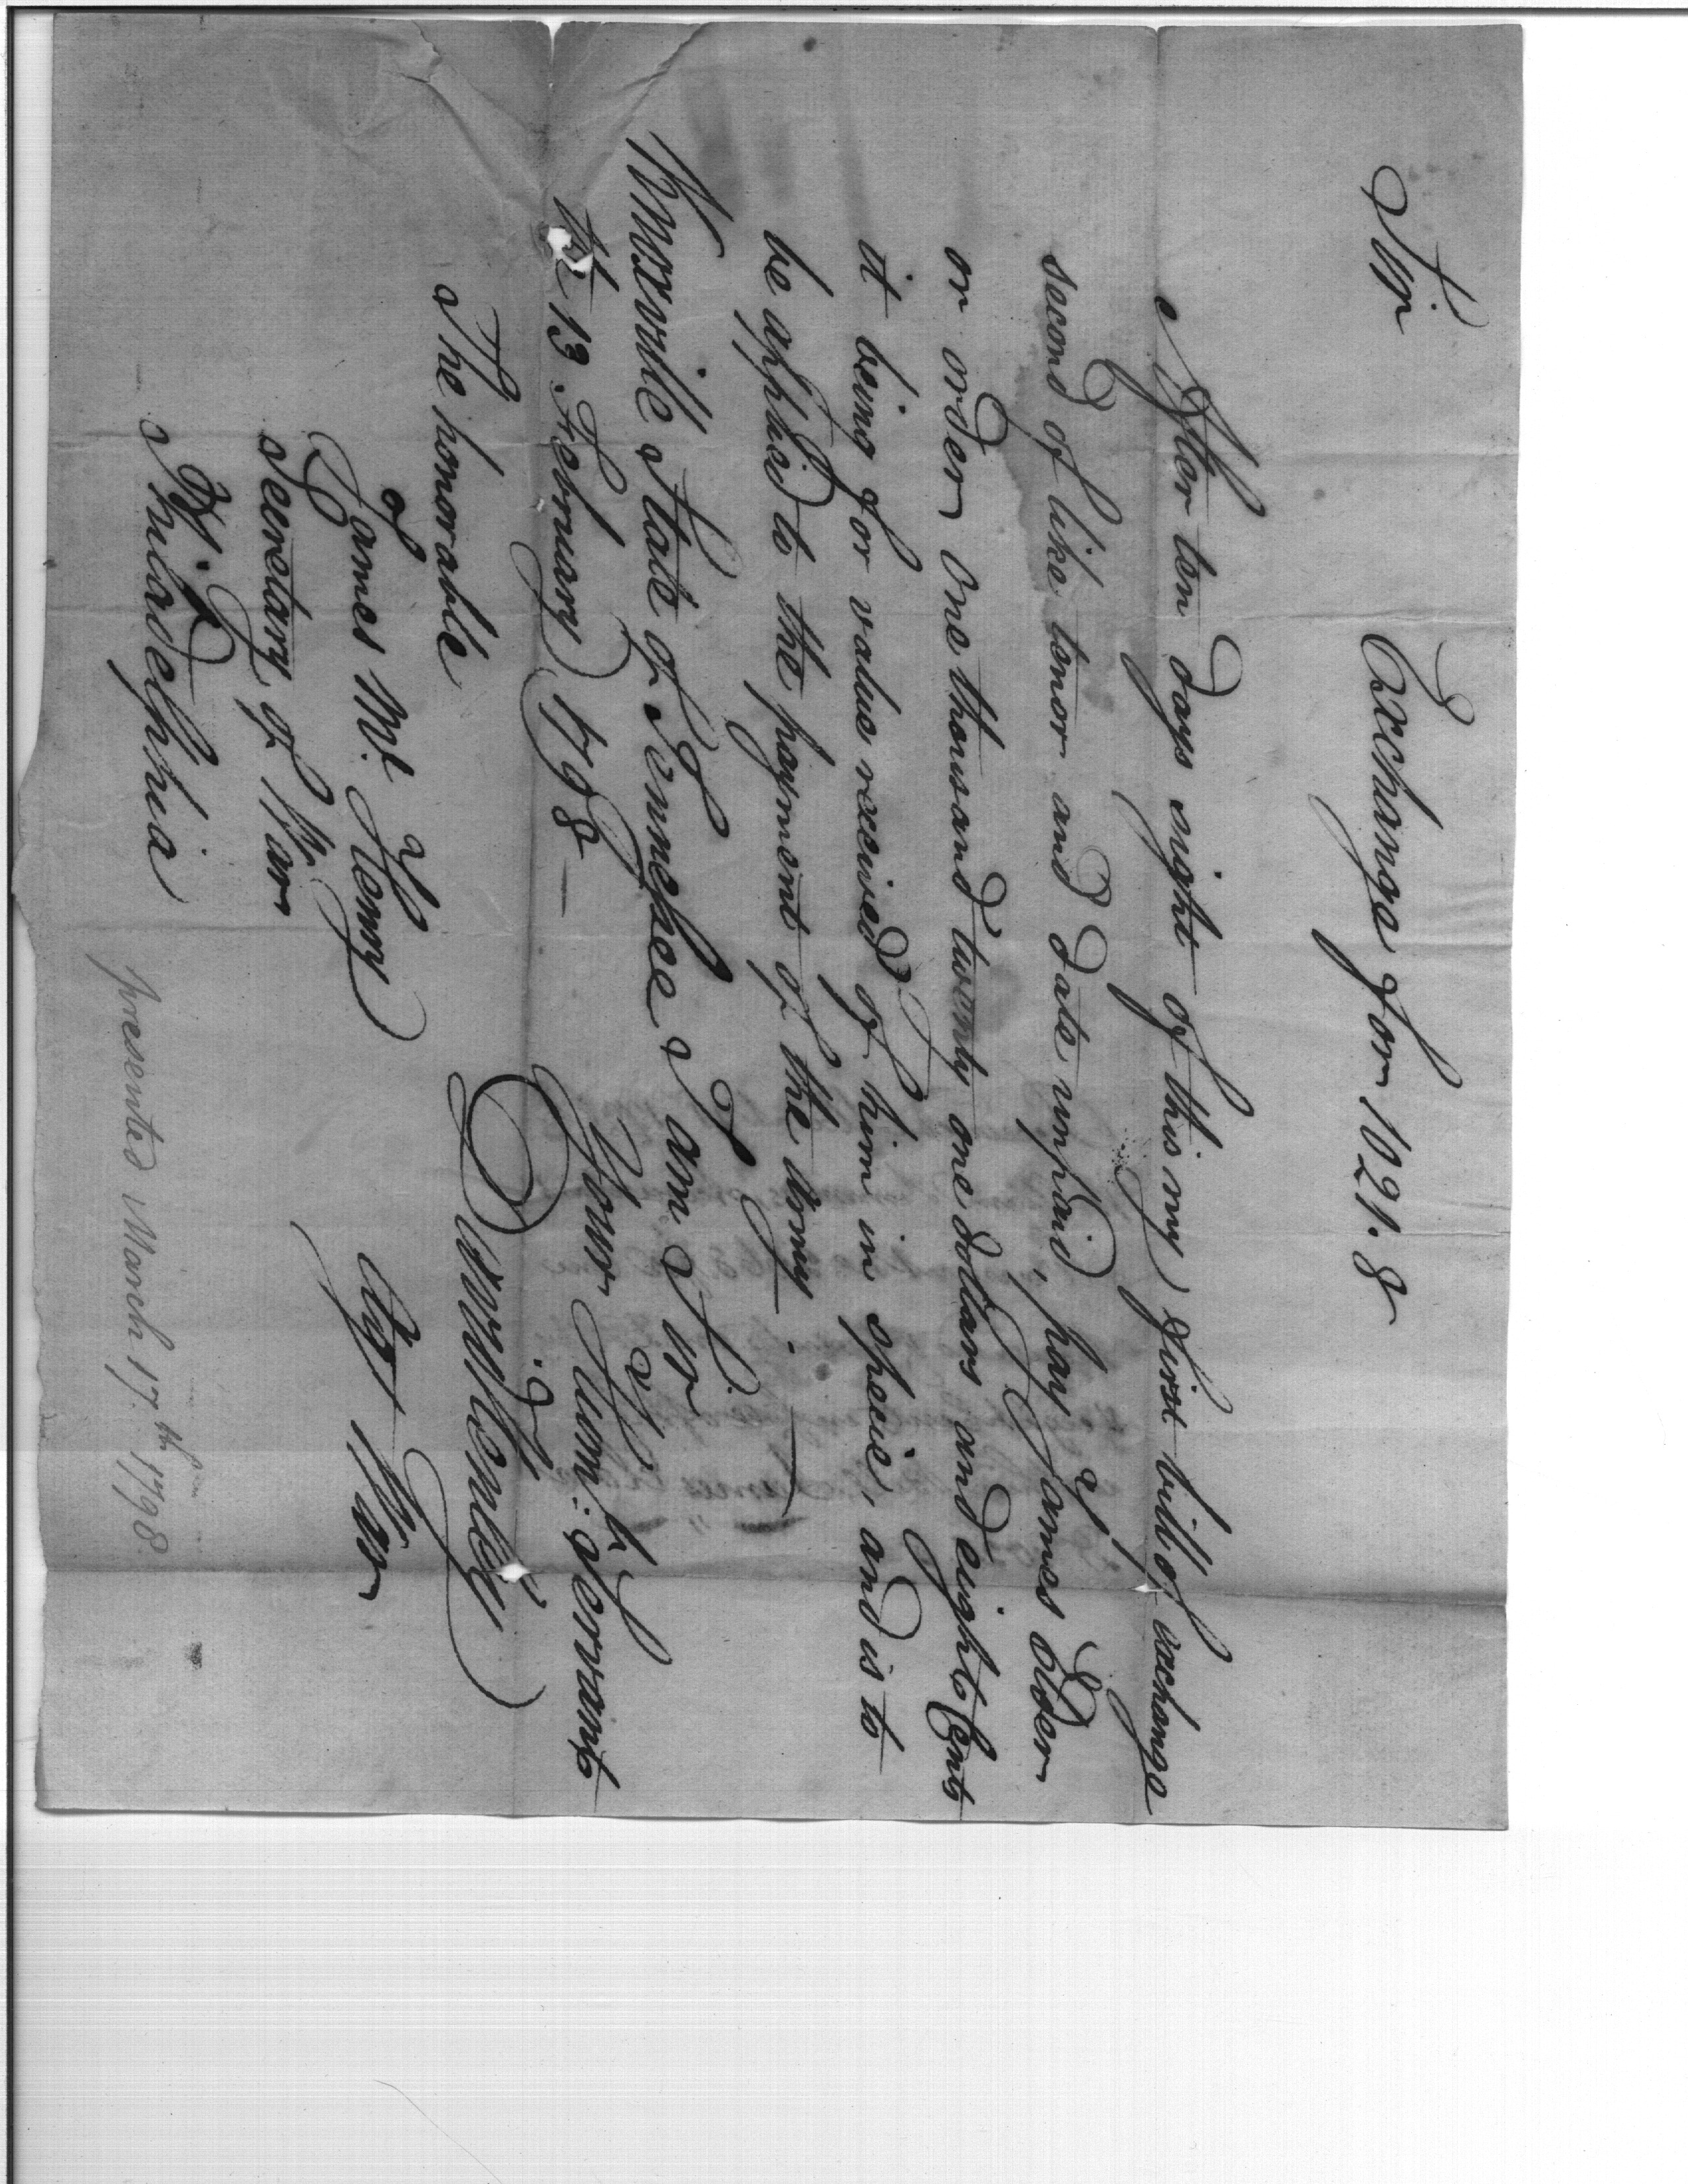 Exchange for 1021.8
Sir
After ten days sight of this my first bill of exchange
second of like tenor and date unpaid, pay James Older
or order one thousand twenty one dollars and eight Cents
it being for value received of him in specie, and is to
be applied to the payment of the army.
Knoxville State of Tennessee I am Sir
the 13 February 1798 — Your Hum: Servant
The honorable
James Mc Henry
Secretary of War
Philadelphia
Agt War
presented March 17th 1798